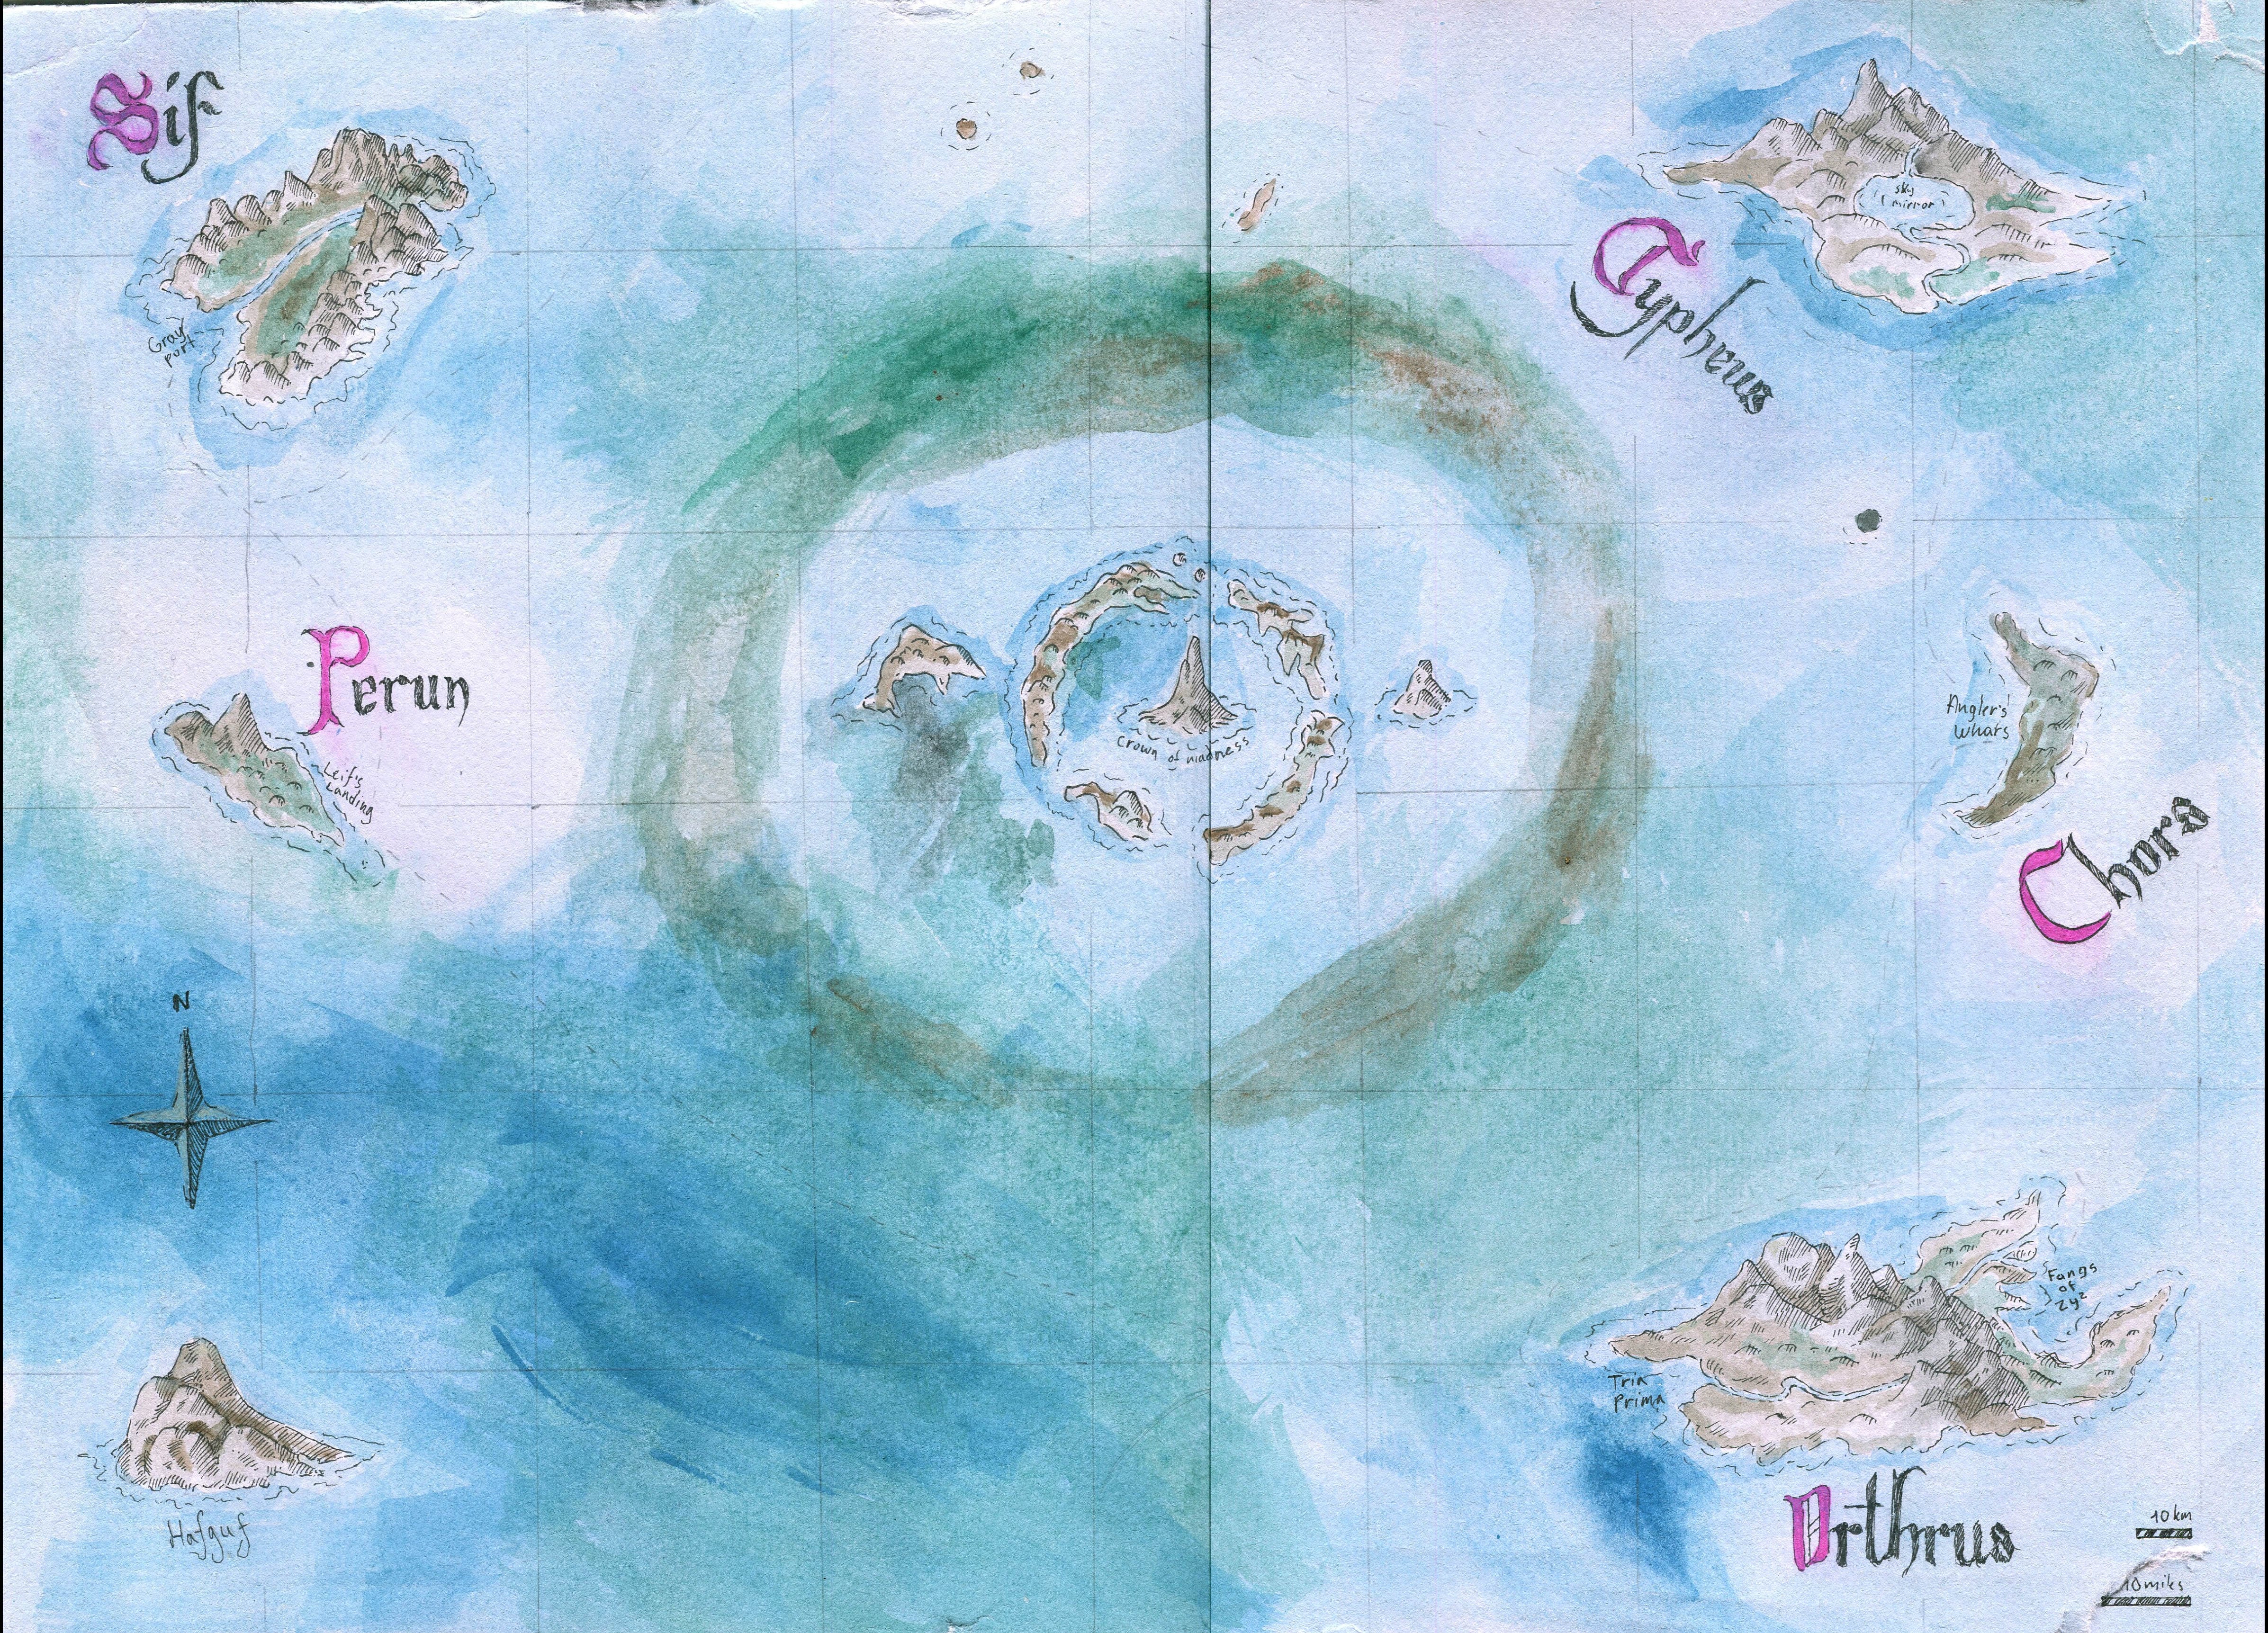 Sif
Gray
port
sky
mirror
Typheus
Perun
Leif's
Landing
Crown of madness
Angler's
Whars
Chora
N
Fangs
of
Zyz
Tria
Prima
Hafguf
Orthrus
10 km
10 miles